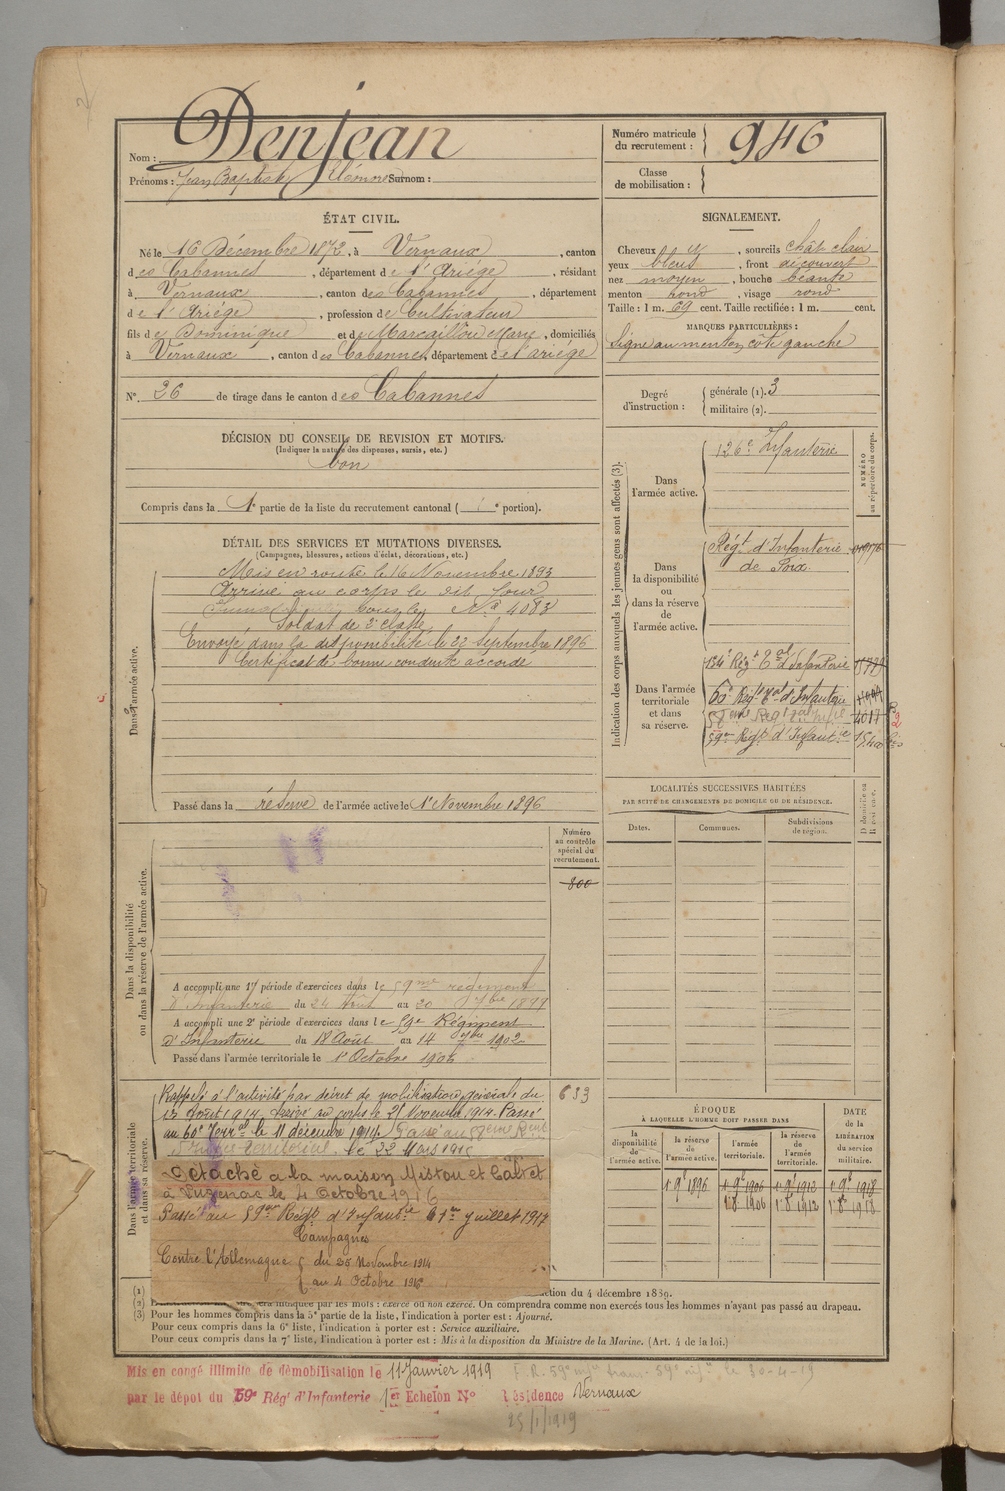 Nom : Denjean
Prénoms : Jean Baptiste Surnom :
Numéro matricule du recrutement : 946
Classe de mobilisation :
ÉTAT CIVIL.
Né le 16 Décembre 1872, à Vernaux, canton
des Cabannes, département de l'Ariége, résidant
à Vernaux, canton des Cabannes, département
de l'Ariége, profession de Cultivateur
fils de Dominique et de Marcaillou Marie, domiciliés
à Vernaux, canton des Cabannes, département de l'ariége
N° 26 de tirage dans le canton des Cabannes
DÉCISION DU CONSEIL DE REVISION ET MOTIFS.
(Indiquer la nature des dispenses, sursis, etc.)
bon
Compris dans la 1e partie de la liste du recrutement cantonal ( e portion).
SIGNALEMENT.
Cheveux , sourcils chât clair
yeux bleus, front découvert
nez moyen, bouche béante
menton rond, visage rond
Taille : 1 m. 69 cent. Taille rectifiée : 1 m. cent.
MARQUES PARTICULIÈRES :
Signe au menton côté gauche
Degré d'instruction :
générale (1). 3
militaire (2).
DÉTAIL DES SERVICES ET MUTATIONS DIVERSES.
(Campagnes, blessures, actions d'éclat, décorations, etc.)
Dans l'armée active.
Mis en route le 16 Novembre 1893
Arrivé au corps le dit jour
sous le N° 4083
Soldat de 2e classe
Envoyé dans la disponibilité le 22 Septembre 1896
Certificat de bonne conduite accordé
Passé dans la réserve de l'armée active le 1er Novembre 1896
Indication des corps auxquels les jeunes gens sont affectés (3).
NUMÉRO au répertoire du corps.
Dans l'armée active.
126e Infanterie
Dans la disponibilité ou dans la réserve de l'armée active.
Régt d'Infanterie
de Foix
Dans l'armée territoriale et dans sa réserve.
134e Régt Tal d'Infanterie
60e Régt Tal d'Infanterie
58eme Régt 4017
59me Régt d'Infantie
LOCALITÉS SUCCESSIVES HABITÉES
PAR SUITE DE CHANGEMENTS DE DOMICILE OU DE RÉSIDENCE.
Dates. Communes. Subdivisions de région.
Dans la disponibilité ou dans la réserve de l'armée active.
Numéro au contrôle spécial du recrutement.
800
A accompli une 1re période d'exercices dans le 59me régiment
d'Infanterie du 24 Août au 20 7bre 1899
A accompli une 2e période d'exercices dans le 59e Régiment
d'Infanterie du 18 Août au 14 7bre 1902
Passé dans l'armée territoriale le 1er Octobre 1906
Dans l'armée territoriale et dans sa réserve.
Rappelé à l'activité par décret de mobilisation générale du
Août 1914. Arrivé au corps le 25 Novembre 1914. Passé
au 60e Terral le 11 décembre 1914. Passé au 58eme Régt
Territorial le 22 Mars 1915
633
Détaché a la maison Mistou et Cabret
à Luzenac le 4 Octobre 1916
Passé au 59me Régt d'Infantie le 1er Juillet 1917
Campagnes
Contre l'Allemagne du 25 Novembre 1914
au 4 Octobre 1916
ÉPOQUE
À LAQUELLE L'HOMME DOIT PASSER DANS
DATE DE LA LIBÉRATION DU SERVICE MILITAIRE.
la disponibilité de l'armée active. la réserve de l'armée active. l'armée territoriale. la réserve de l'armée territoriale.
1er 9e 1896 1er 9e 1906 1er 9e 1912 1er 9e 1918
1er 8e 1906 1er 8e 1912 1er 8e 1918
(1) ction du 4 décembre 1889.
(2) indiquée par les mots : exercé ou non exercé. On comprendra comme non exercés tous les hommes n'ayant pas passé au drapeau.
(3) Pour les hommes compris dans la 5e partie de la liste, l'indication à porter est : Ajourné.
Pour ceux compris dans la 6e liste, l'indication à porter est : Service auxiliaire.
Pour ceux compris dans la 7e liste, l'indication à porter est : Mis à la disposition du Ministre de la Marine. (Art. 4 de la loi.)
Mis en congé illimité de démobilisation le 11 Janvier 1919
par le dépôt du 59e Régt d'Infanterie 1er Echelon N° Résidence Vernaux
25/1/1919